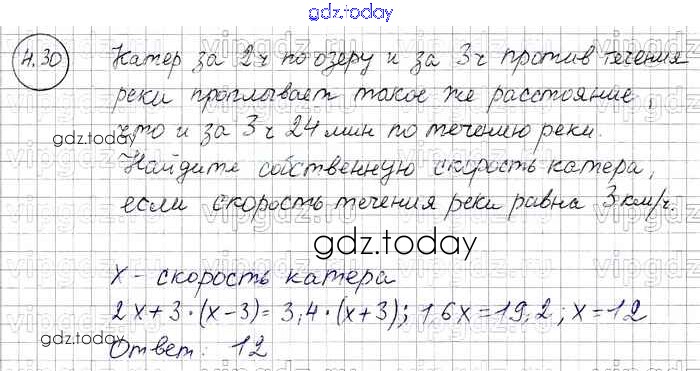 gdz.today
4.30 Катер за 2ч по озеру и за 3ч против течения
реки проплывает такое же расстояние,
что и за 3ч 24 мин по течению реки.
gdz.today
Найдите собственную скорость катера,
если скорость течения реки равна 3 км/ч
gdz.today
x - скорость катера
2x+3·(x-3)=3,4·(x+3); 1,6x=19,2; x=12
gdz.today
Ответ: 12